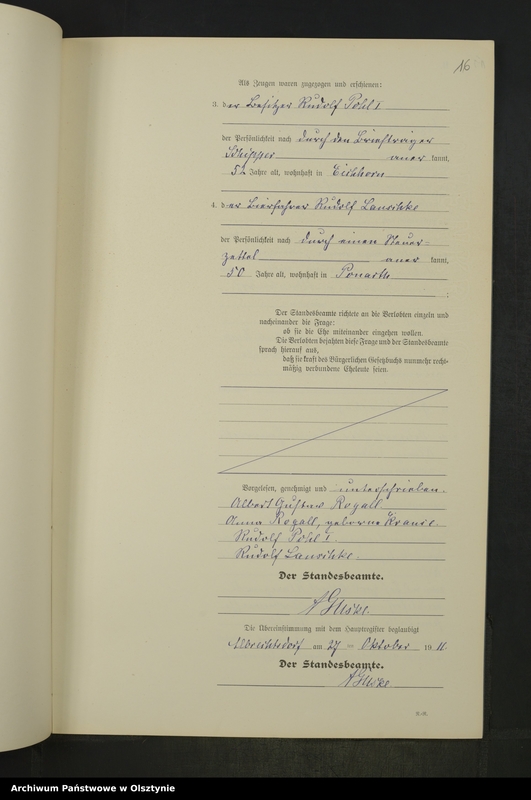 16
Als Zeugen waren zugezogen und erschienen:
3. der Besitzer Rudolf Pohl I.
der Persönlichkeit nach durch den Briefträger
Schipper anerkannt,
52 Jahre alt, wohnhaft in Eichhorn
4. der Bierfahrer Rudolf Lanschke
der Persönlichkeit nach durch einen Steuer-
zettel anerkannt,
50 Jahre alt, wohnhaft in Ponarth
Der Standesbeamte richtete an die Verlobten einzeln und
nacheinander die Frage:
ob sie die Ehe miteinander eingehen wollen.
Die Verlobten bejahten diese Frage und der Standesbeamte
sprach hierauf aus,
daß sie kraft des Bürgerlichen Gesetzbuchs nunmehr recht-
mäßig verbundene Eheleute seien.
Vorgelesen, genehmigt und unterschrieben.
Albert Gustav Rogall.
Anna Rogall, geborene Krause.
Rudolf Pohl I.
Rudolf Lanschke.
Der Standesbeamte.
Die Übereinstimmung mit dem Hauptregister beglaubigt
Albrechtsdorf am 27 ten Oktober 1911.
Der Standesbeamte.
Archiwum Państwowe w Olsztynie